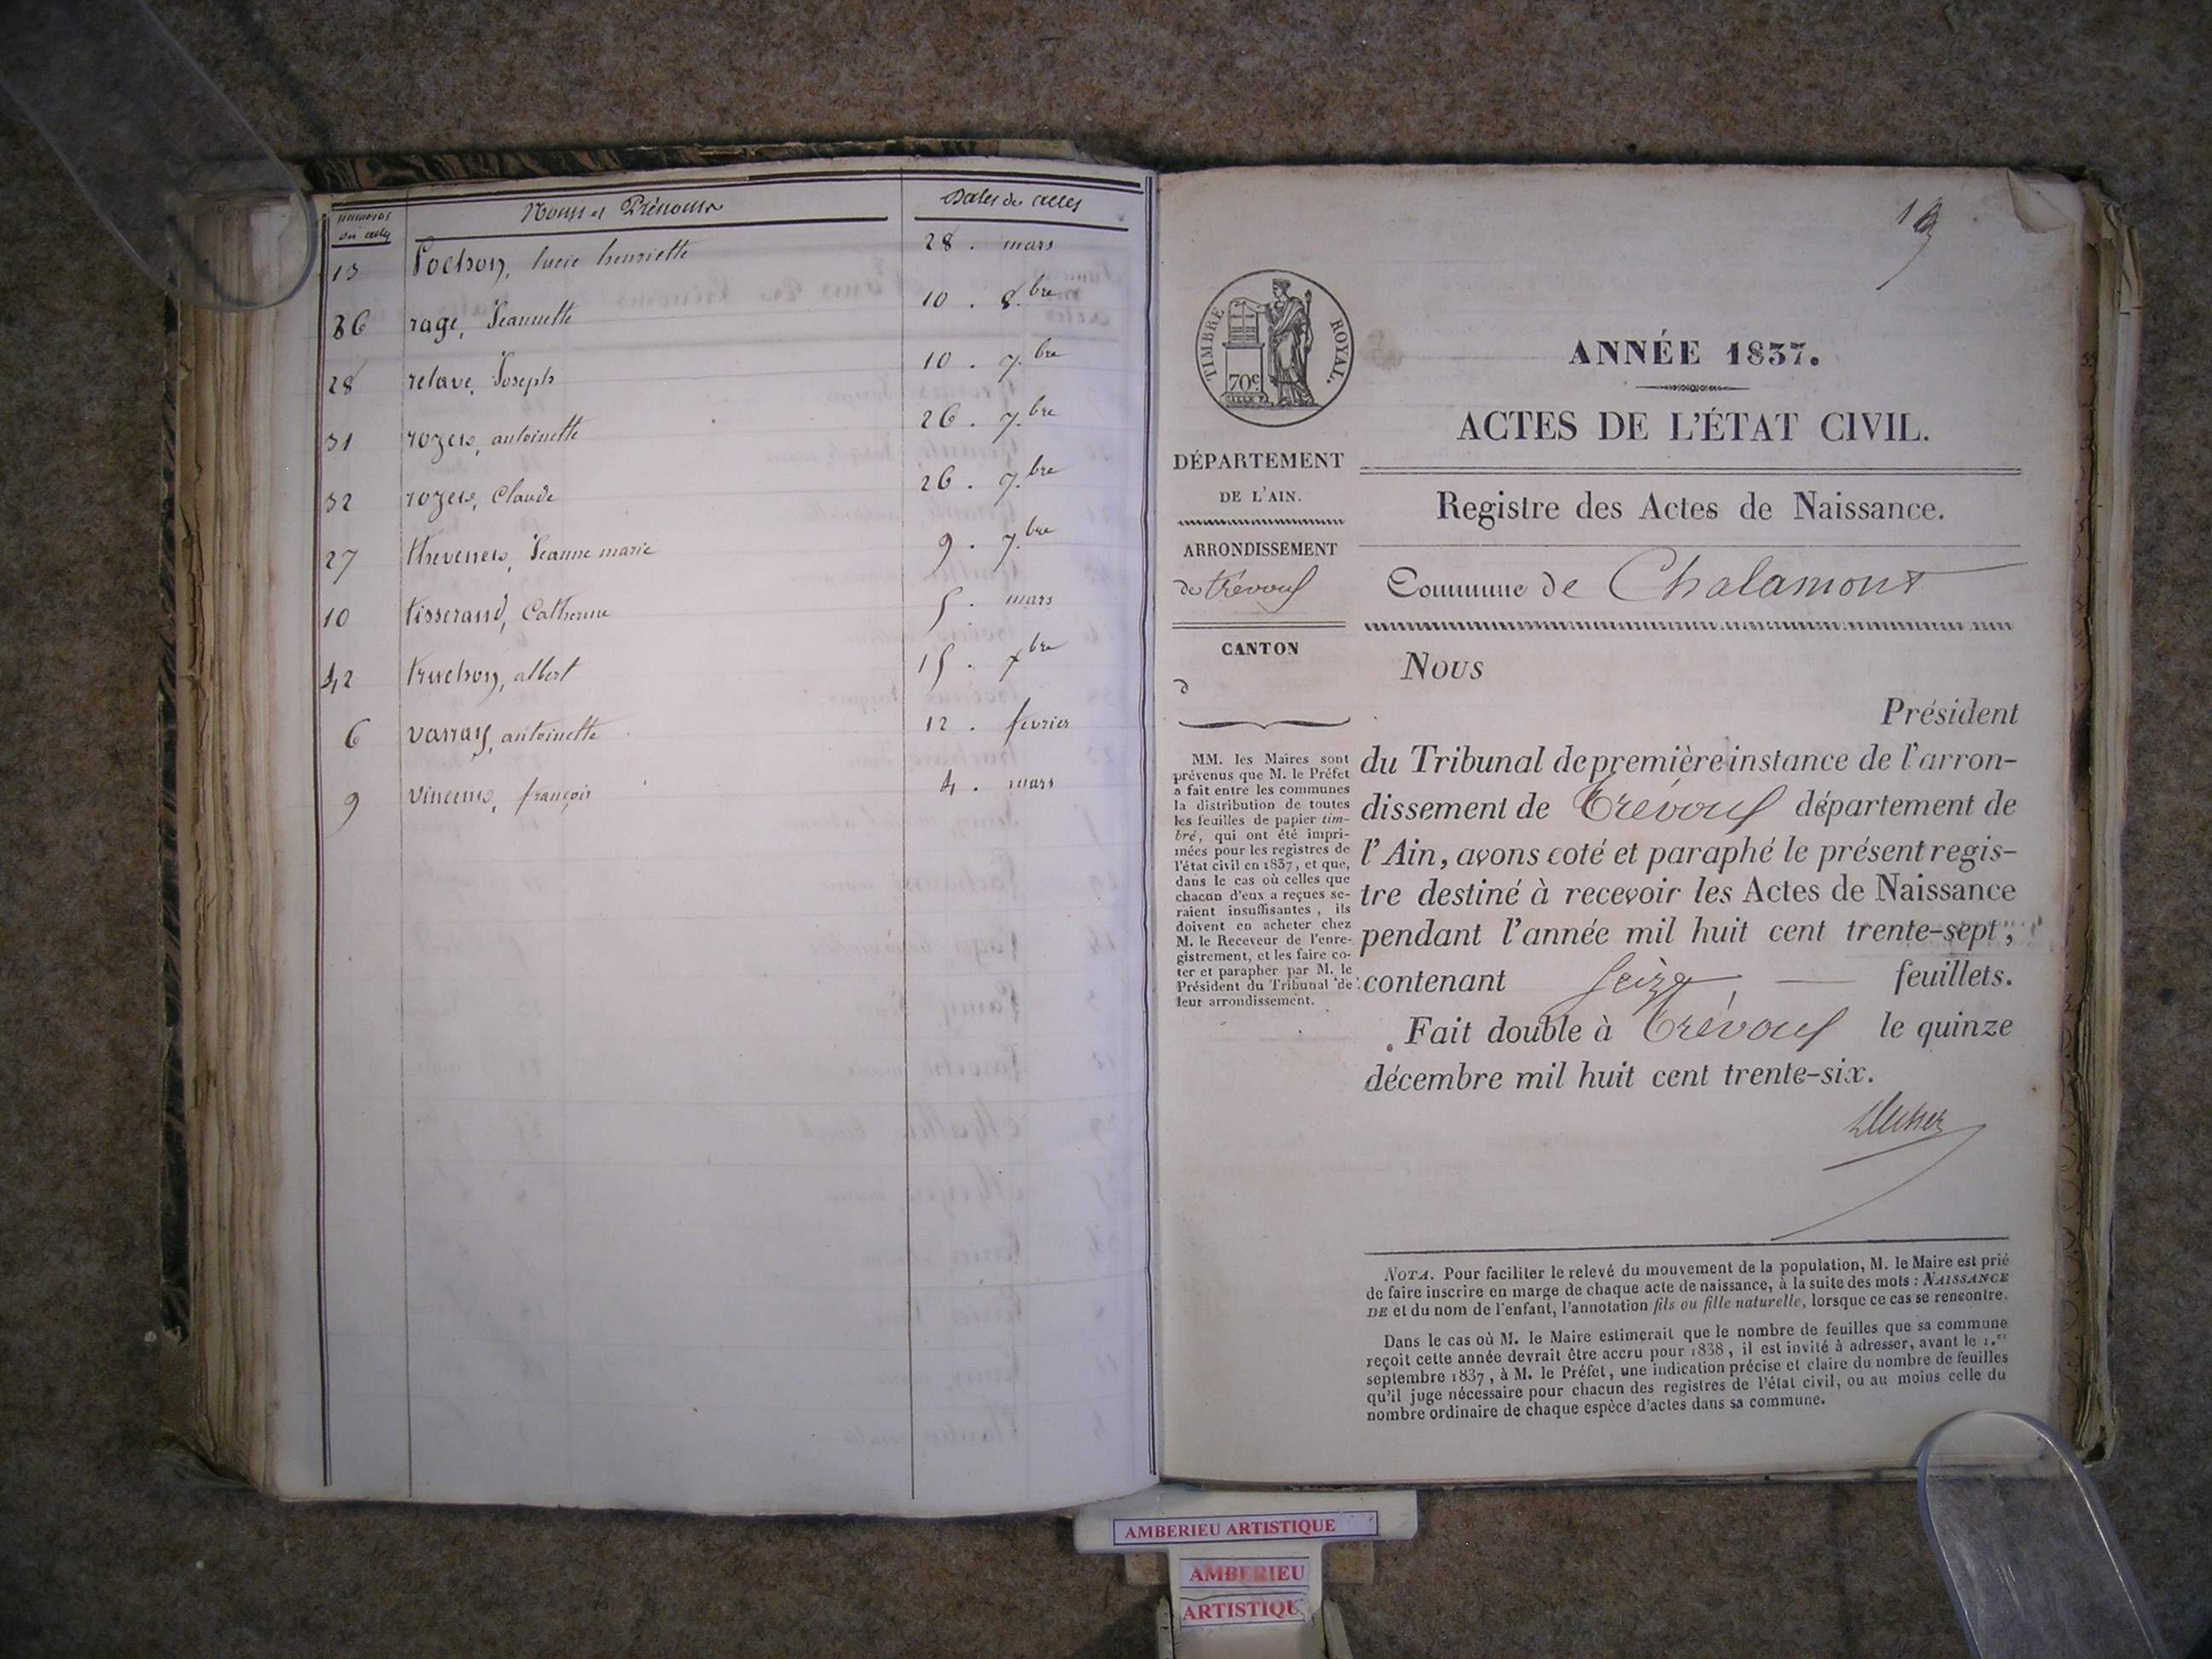 numeros des actes
Noms et Prénoms
Dates des actes
13 Pochon, lucie henriette 28 . mars
36 rage, Jeannette 10 . 8.bre
28 relave, Joseph 10 . 7.bre
31 rozer, antoinette 26 . 7.bre
32 rozer, Claude 26 . 7.bre
27 thevenet, Jeanne marie 9 . 7.bre
10 tisserand, Catherine 5 . mars
42 truchon, albert 15 . xbre
6 varray, antoinette 12 . fevrier
9 vincent, françois 4 . mars
TIMBRE ROYAL.
70c.
ANNÉE 1837.
ACTES DE L'ÉTAT CIVIL.
DÉPARTEMENT
DE L'AIN.
ARRONDISSEMENT
de trévoux
CANTON
d
MM. les Maires sont
prévenus que M. le Préfet
a fait entre les communes
la distribution de toutes
les feuilles de papier tim-
bré, qui ont été impri-
mées pour les registres de
l'état civil en 1837, et que,
dans le cas où celles que
chacun d'eux a reçues se-
raient insuffisantes, ils
doivent en acheter chez
M. le Receveur de l'enre-
gistrement, et les faire co-
ter et parapher par M. le
Président du Tribunal de
leur arrondissement.
Registre des Actes de Naissance.
Commune de Chalamont
Nous
Président
du Tribunal de première instance de l'arron-
dissement de Trévoux département de
l'Ain, avons coté et paraphé le présent regis-
tre destiné à recevoir les Actes de Naissance
pendant l'année mil huit cent trente-sept,
contenant Seize, — feuillets.
Fait double à Trévoux le quinze
décembre mil huit cent trente-six.
NOTA. Pour faciliter le relevé du mouvement de la population, M. le Maire est prié
de faire inscrire en marge de chaque acte de naissance, à la suite des mots : NAISSANCE
DE et du nom de l'enfant, l'annotation fils ou fille naturelle, lorsque ce cas se rencontre.
Dans le cas où M. le Maire estimerait que le nombre de feuilles que sa commune
reçoit cette année devrait être accru pour 1838, il est invité à adresser, avant le 1.er
septembre 1837, à M. le Préfet, une indication précise et claire du nombre de feuilles
qu'il juge nécessaire pour chacun des registres de l'état civil, ou au moins celle du
nombre ordinaire de chaque espèce d'actes dans sa commune.
AMBERIEU ARTISTIQUE
AMBERIEU
ARTISTIQU